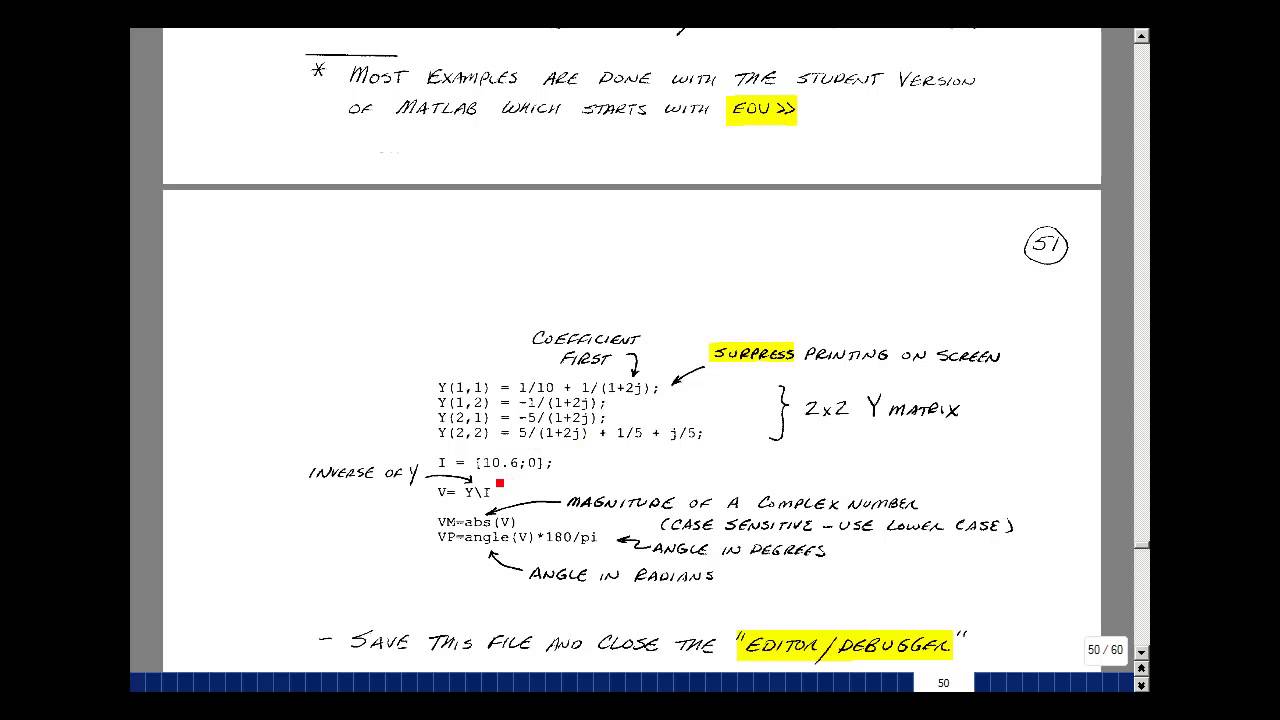 * MOST EXAMPLES ARE DONE WITH THE STUDENT VERSION
OF MATLAB WHICH STARTS WITH EDU >>
51
COEFFICIENT
FIRST
SURPRESS PRINTING ON SCREEN
Y(1,1) = 1/10 + 1/(1+2j);
Y(1,2) = -1/(1+2j);
Y(2,1) = -5/(1+2j);
Y(2,2) = 5/(1+2j) + 1/5 + j/5;
2x2 Y MATRIX
I = [10.6;0];
INVERSE OF Y
V= Y\I
MAGNITUDE OF A COMPLEX NUMBER
(CASE SENSITIVE - USE LOWER CASE)
VM=abs(V)
VP=angle(V)*180/pi
ANGLE IN DEGREES
ANGLE IN RADIANS
- SAVE THIS FILE AND CLOSE THE "EDITOR/DEBUGGER"
50 / 60
50